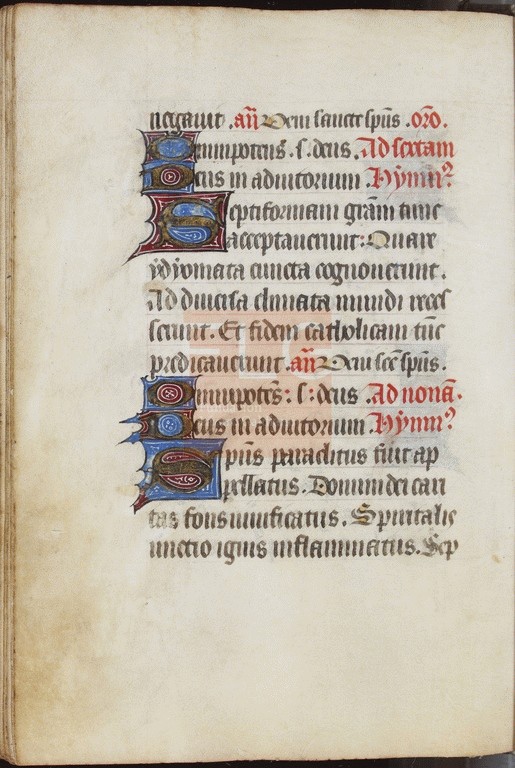 negauit .añ Veni sancte sp̄us .or̄o.
Omnipotens . s . deus . Ad sextam
Deus in adiutorium Hymn᷒
Septiformam grãm tunc
acceptauerunt: Quare
ydyomata cuncta cognouerunt .
Ad diuersa climata mundi reces
serunt . Et fidem catholicam tũc
predicauerunt . añ Veni sc̄e sp̄us .
Omnipotẽs : s : deus Ad nonã .
Deus in adiutorium Hymn᷒
Sp̄us paraclitus fuit ap
pellatus . Donum dei cari
tas fons uiuificatus . Spiritalis
unctio ignis inflammatus . Sep